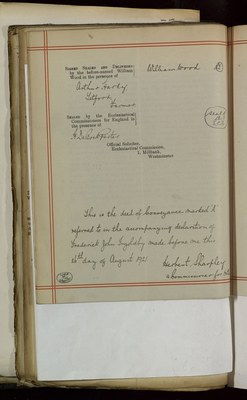 Signed Sealed and Delivered
by the before-named William
Wood in the presence of
William Wood
Arthur Hardy
Farmer
Sealed by the Ecclesiastical
Commissioners for England in
the presence of
Official Solicitor,
Ecclesiastical Commission,
1, Millbank,
Westminster
This is the deed of Conveyance marked A
referred to in the accompanying declaration of
Frederick John made before me this
day of August
Herbert Sharpley
a Commissioner for